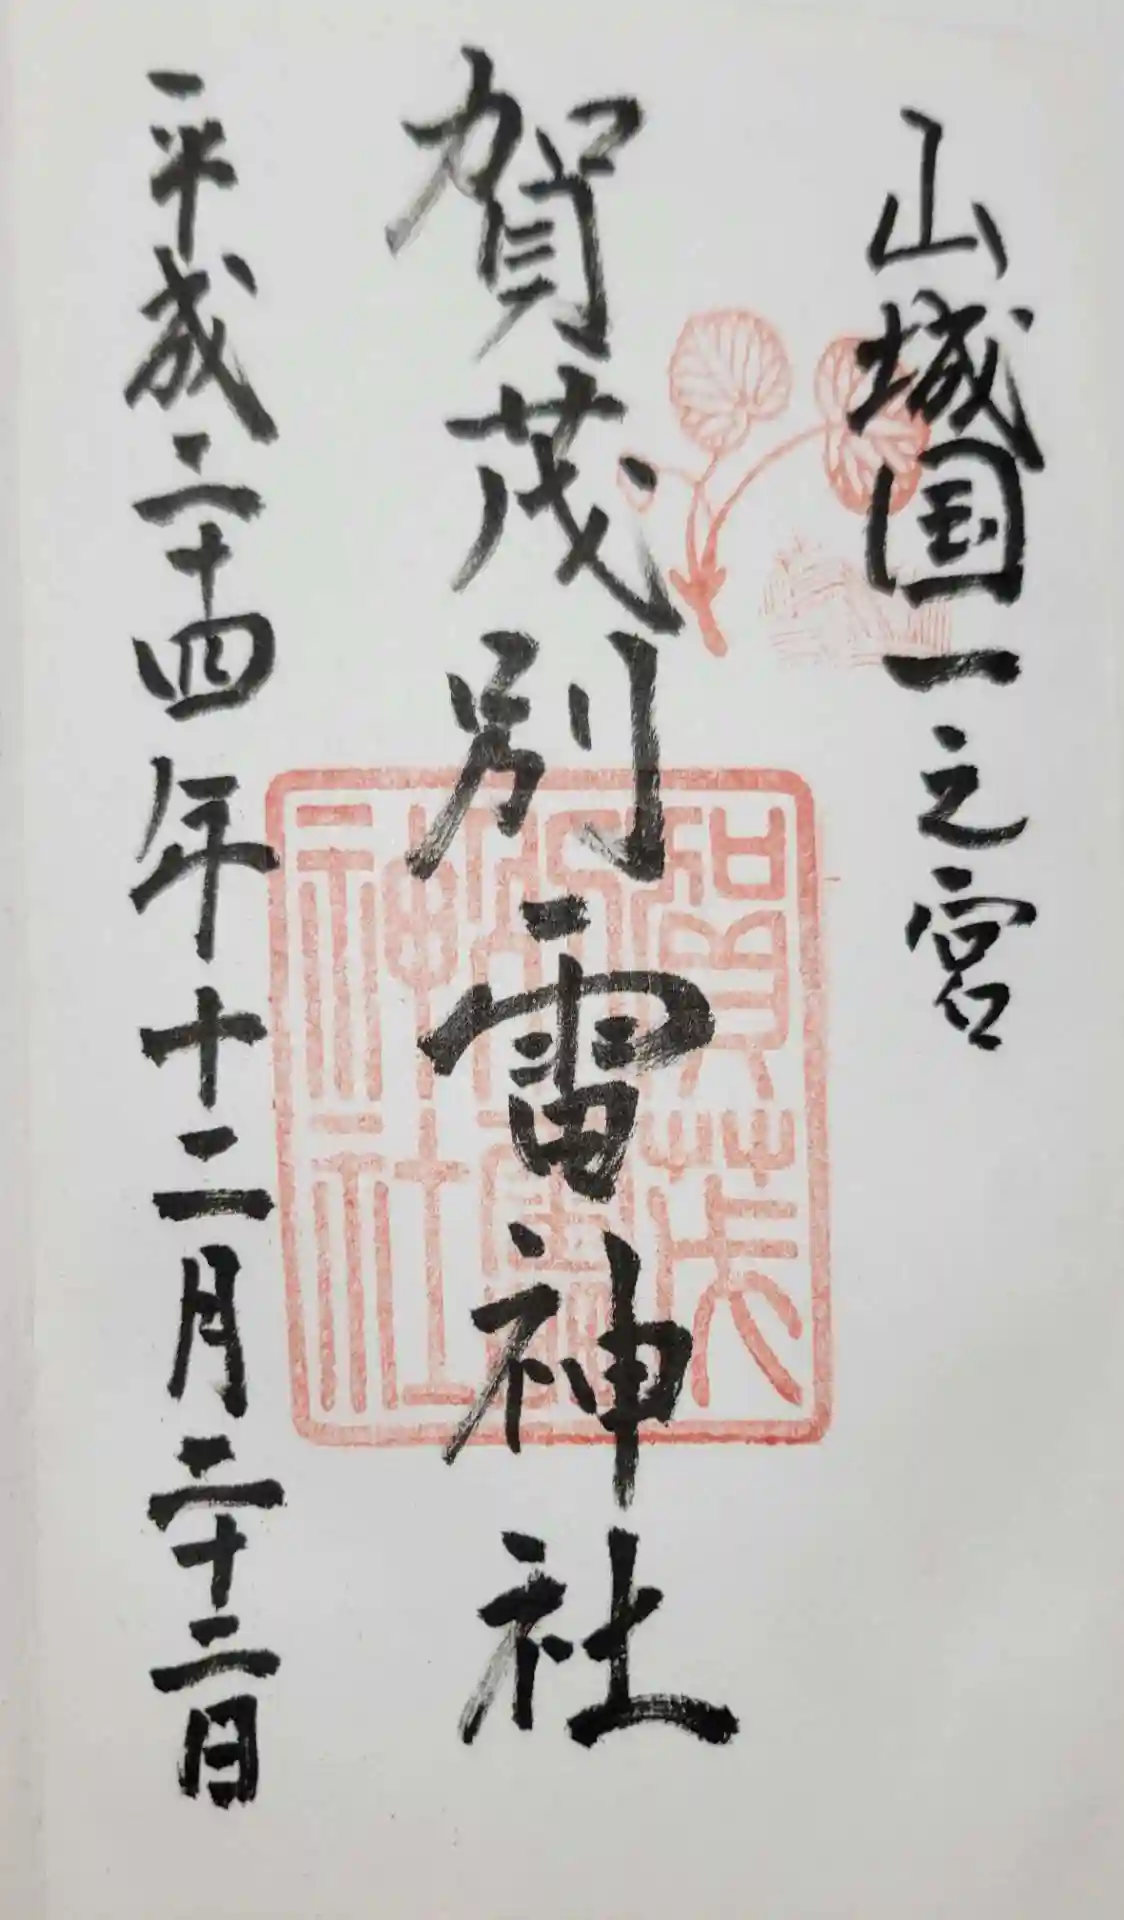 山城国一之宮
賀茂別雷神社
平成二十四年十二月二十三日
賀茂
別雷
神社